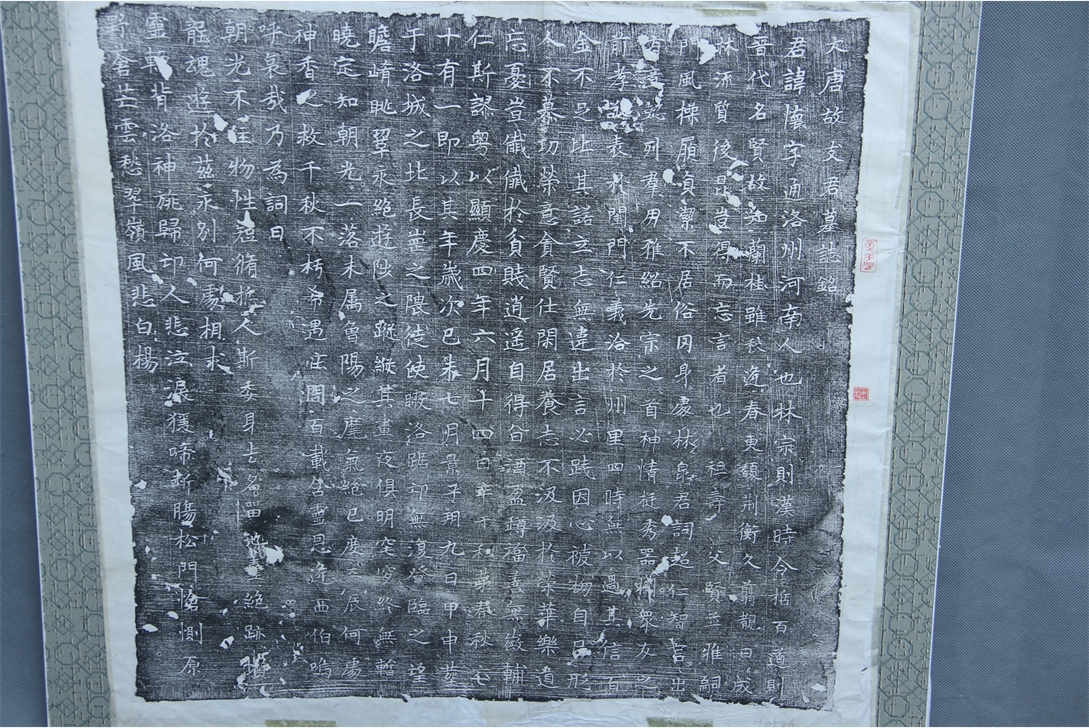 大唐故支君墓誌銘
君諱懷字通洛州河南人也林宗則漢時令哲百道則
晉代名賢故知蘭桂雖秋逸春東蘋荊衡久翦觀曰成
林流質後昆豈得而忘言者也祖壽父賢並雅嗣
門風操履貞潔不居俗网身處林泉君詞超仁智言出
列羣用雅紹先宗之首神情挺秀器稱衆友
前孝表於閨門仁義洽於州里四時無以過其信百
金不足比其諾立志無違出言必踐因心被物自足形
人不慕切榮意貪賢仕閑居養志不汲汲於榮華樂道
忘憂豈儎儎於負賤逍遥自得旨酒盈罇福善無徵輔
仁斯謬粤以顯慶四年六月十四日卒于私第春秋六
十有一即以其年歲次己未七月景子朔九日甲申葬
于洛城之北長崗之隈徒使曒洛踞邙無復登臨之望
瞻崤眺翠永絕遊陟之蹤縱其晝夜俱明窀穸終無暫
曉定知朝光一落未属魯陽之麾氣絕已度三辰何處
神香之救千秋不朽希遇庄周百載含靈思逢西伯嗚
呼哀哉乃為詞曰
朝光不住物性短脩哲人斯委身去名留絕跡
龍魂遊於兹永別何處相求
靈輀背洛神旐歸邙人悲泣淚猨啼斷腸松門愴惻原
野蒼芒雲愁翠嶺風悲白楊